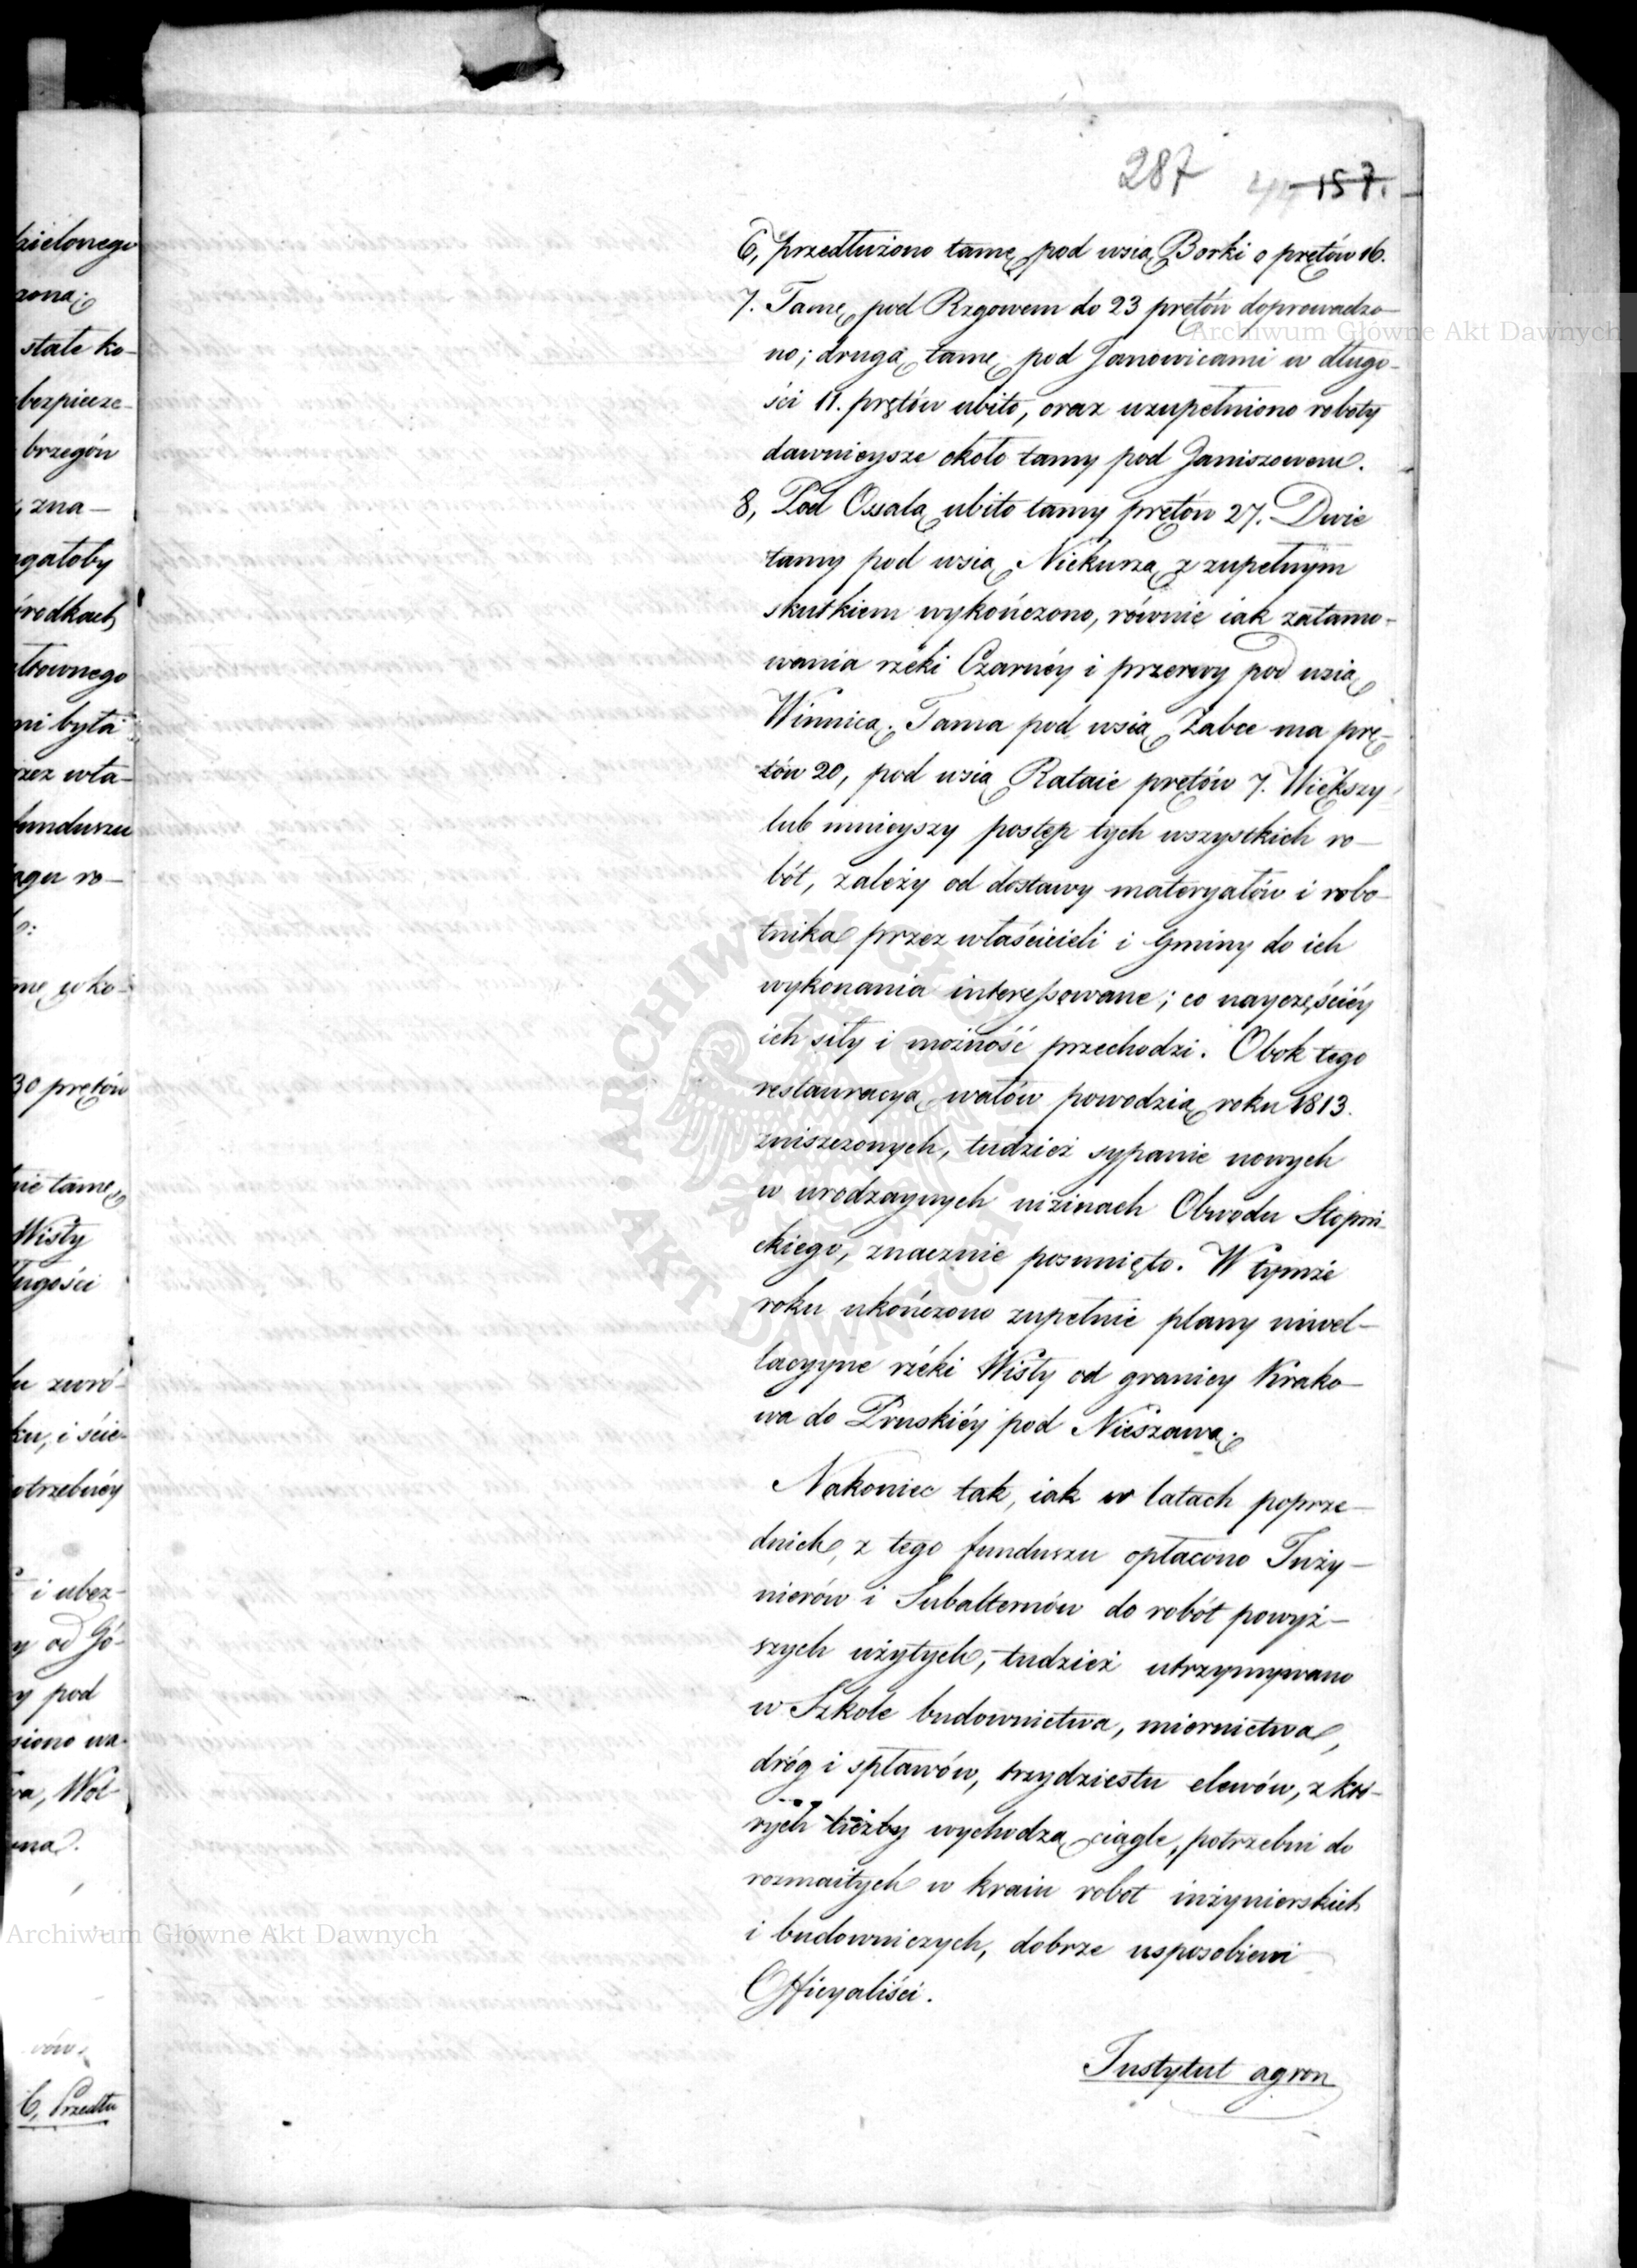 287 157.
6, przedłużono tamę pod wsią Borki o prętów 16.
7. Tamę pod Rzgowem do 23 prętów doprowadzo-
no; drugą tamę pod Janowicami w długo-
ści 11. prętów ubito, oraz uzupełniono roboty
dawnieysze około tamy pod Janiszowem.
8, Pod Ossalą ubito tamy prętów 27. Dwie
tamy pod wsią Niekurzą z zupełnym
skutkiem wykończono, równie iak zatamo-
wania rzéki Czarnéy i przerwy pod wsią
Winnicą. Tama pod wsią Zabce ma prę-
tów 20, pod wsią Rataie prętów 7. Większy
lub mnieyszy postęp tych wszystkich ro-
bót, zależy od dostawy materyałów i robo-
tnika przez właścicieli i Gminy do ich
wykonania interessowane; co nayczęściéy
ich siły i możność przechodzi. Obok tego
restauracyą wałów powodzią roku 1813.
zniszczonych, tudzież sypanie nowych
w urodzaynych nizinach Obwodu Stopni-
ckiego, znacznie posunięto. W tymże
roku ukończono zupełnie plany niwel-
lacyyne rzéki Wisły od granicy Krako-
wa do Pruskiéy pod Nieszawą.
Nakoniec tak, iak w latach poprze-
dnich, z tego funduszu opłacono Inży-
nierów i Subalternów do robót powyż-
szych użytych, tudzież utrzymywano
w Szkole budownictwa, miernictwa,
dróg i spławów, trzydziestu elewów, z któ-
rych liczby wychodzą ciągle, potrzebni do
rozmaitych w kraiu robot inżynierskich
i budowniczych, dobrze usposobieni
Officyaliści.
Instytut agron
dzielonego
stałe ko-
bezpiecze-
brzegów
zna-
ni była
funduszu
30 prętów
Wisły
i ubez-
y pod
6, Przedłu
Archiwum Główne Akt Dawnych
Archiwum Główne Akt Dawnych
ARCHIWUM GŁÓWNE AKT DAWNYCH